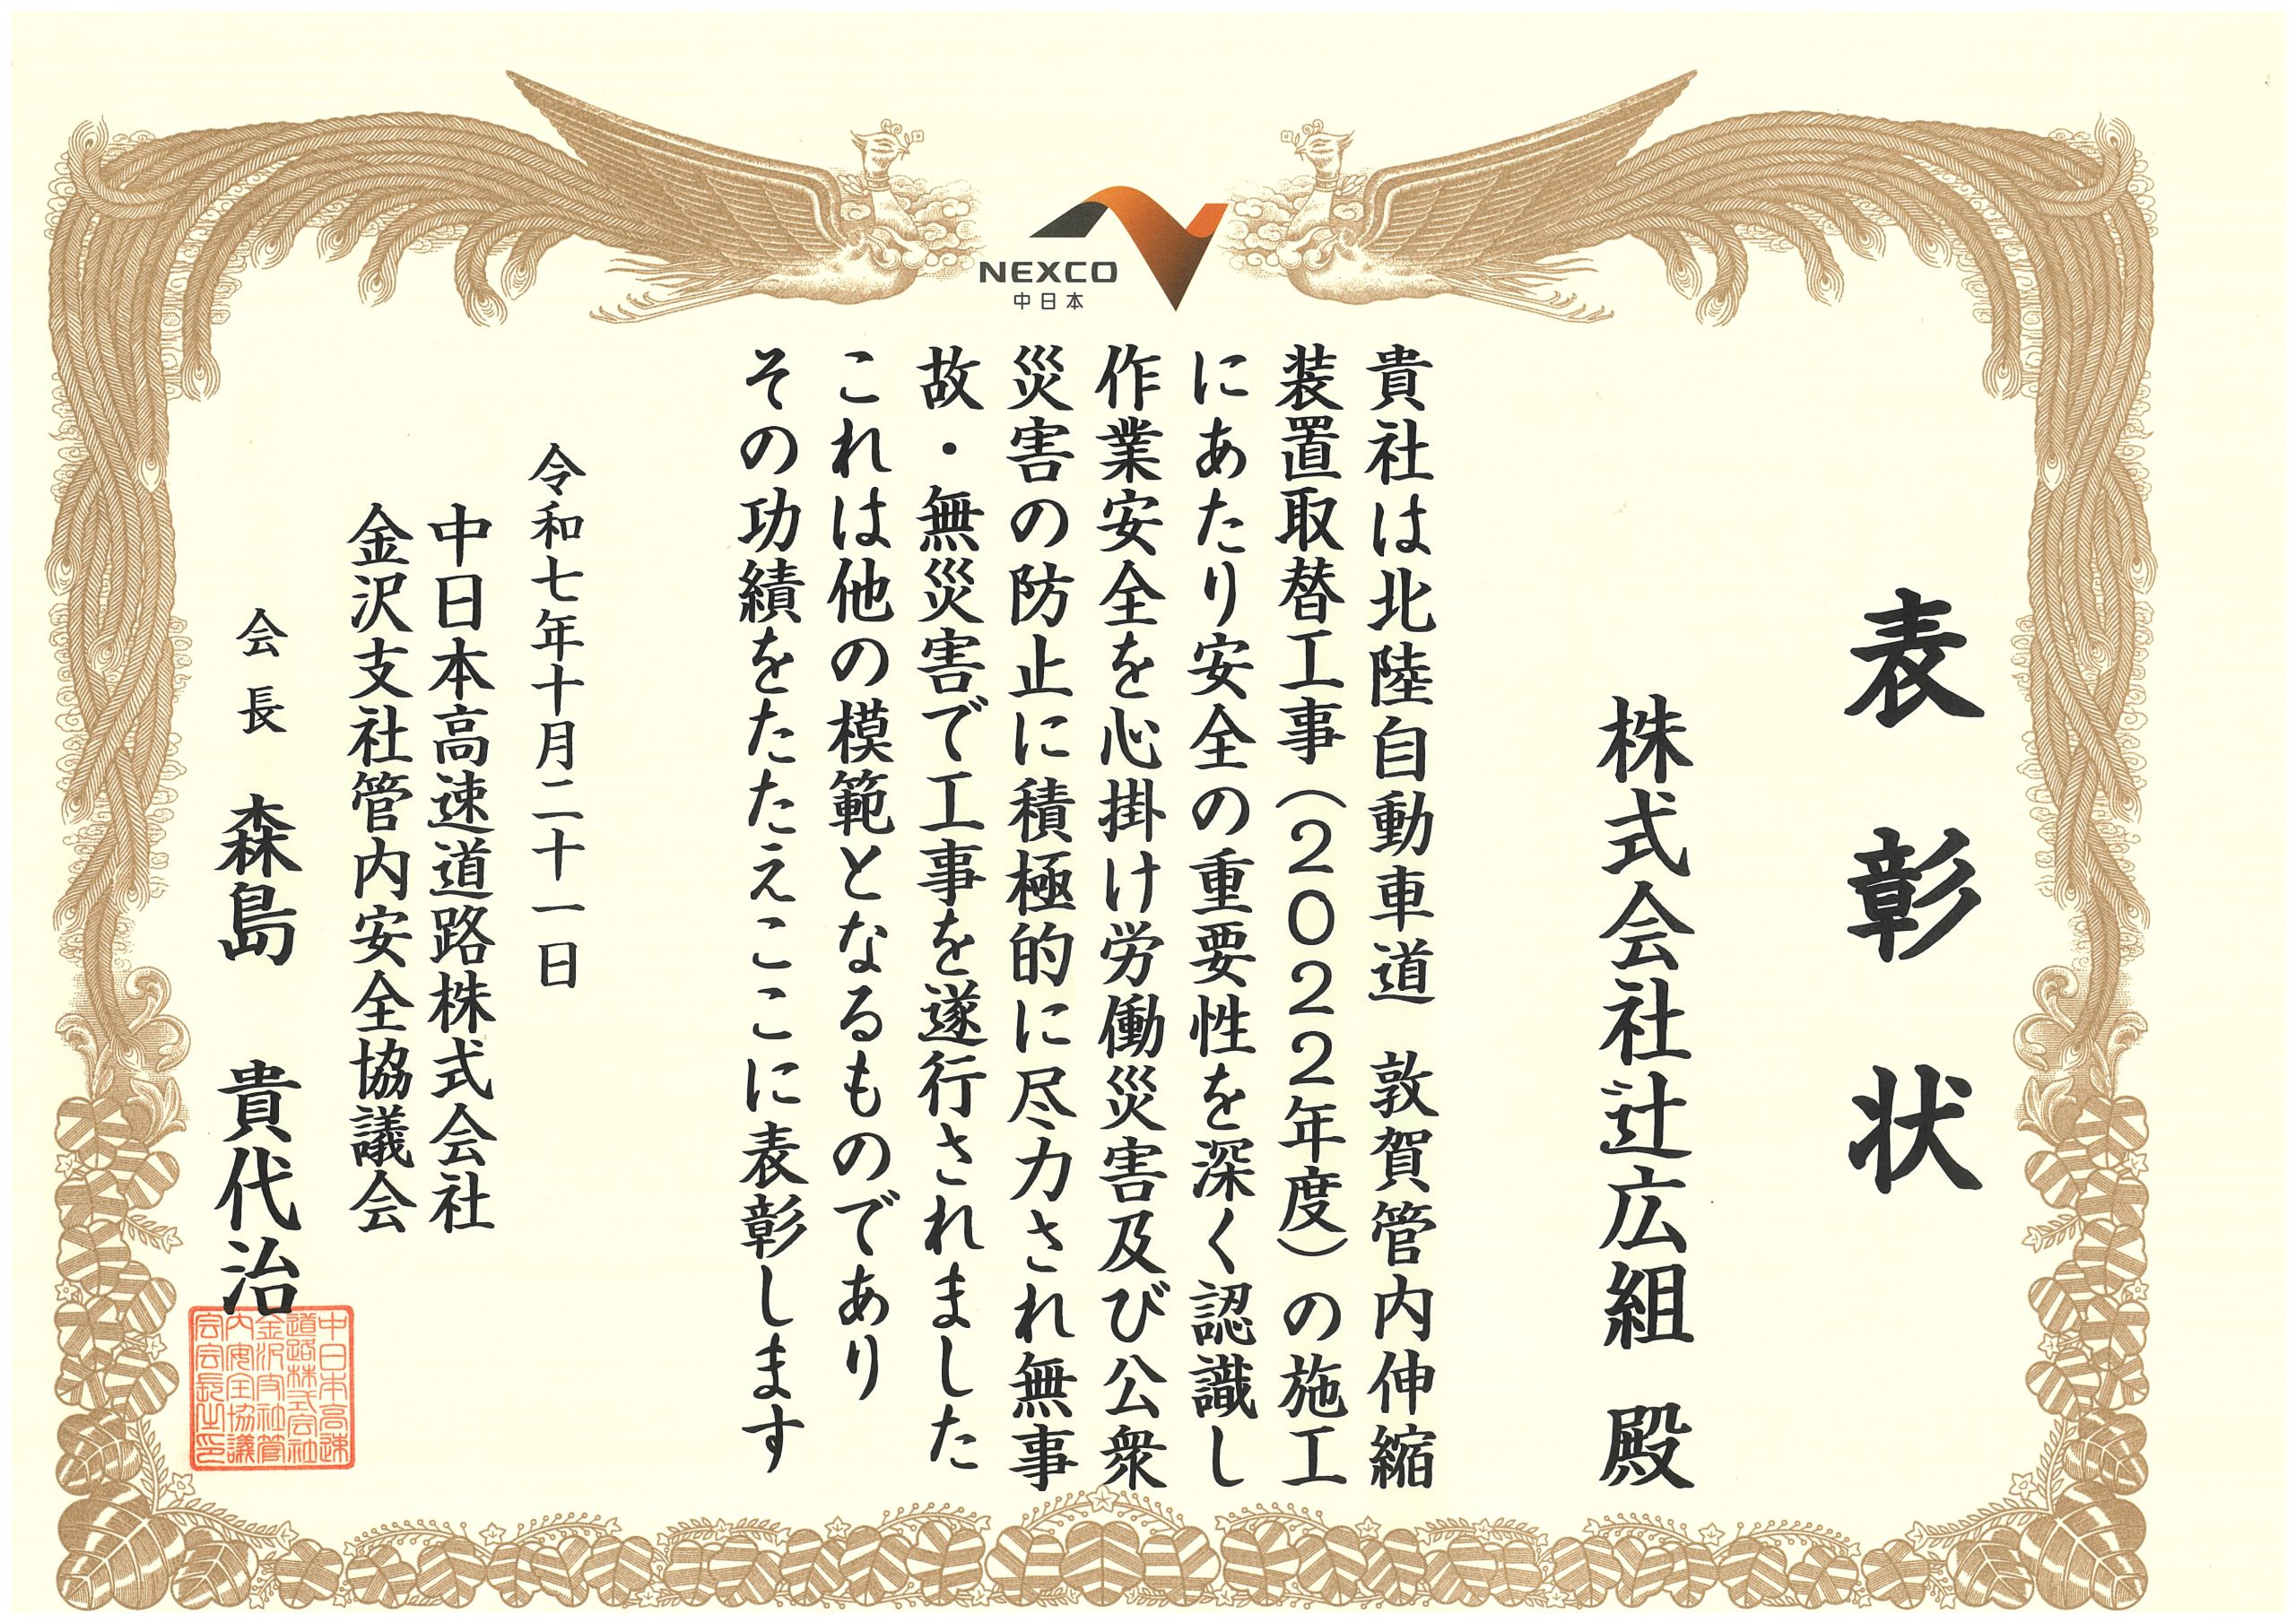 NEXCO
中日本
表彰状
株式会社辻広組 殿
貴社は北陸自動車道 敦賀管内伸縮
装置取替工事（２０２２年度）の施工
にあたり安全の重要性を深く認識し
作業安全を心掛け労働災害及び公衆
災害の防止に積極的に尽力され無事
故・無災害で工事を遂行されました
これは他の模範となるものであり
その功績をたたえここに表彰します
令和七年十月二十一日
中日本高速道路株式会社
金沢支社管内安全協議会
会長 森島 貴代治
中日本高速
道路株式会社
金沢支社管
内安全協議
会会長之印